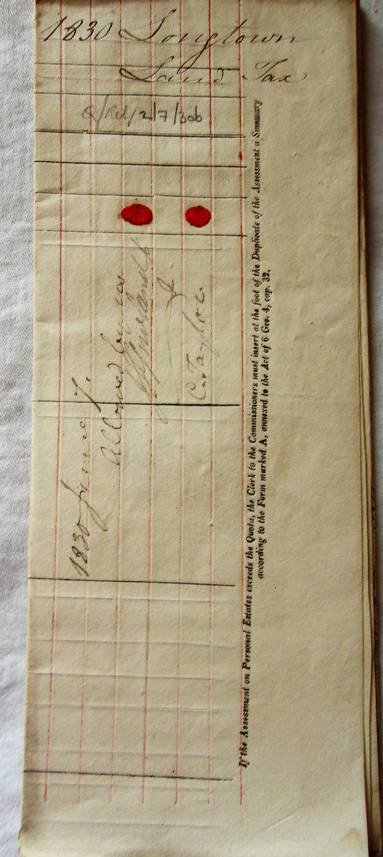 1830 Longtown
Land Tax
Q/Rel/2/7/30b
1830 June 7.
Allowed by us
&
C. Taylor
If the Assessment on Personal Estates exceeds the Quota, the Clerk to the Commissioners must insert at the foot of the Duplicate of the Assessment a Summary
according to the Form marked A, annexed to the Act of 6 Geo. 4, cap. 32.